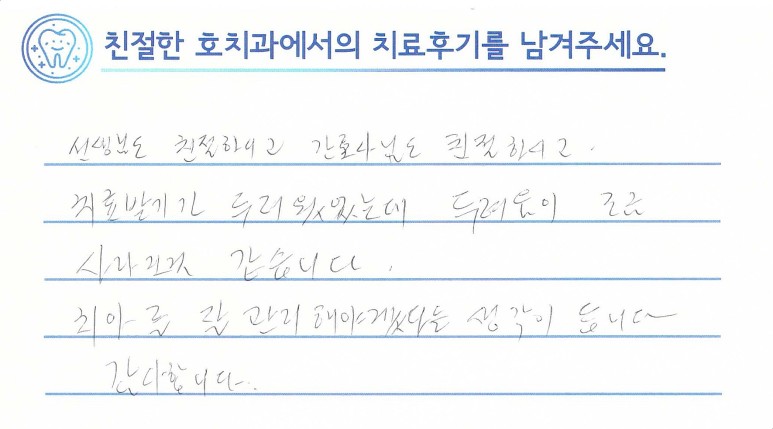 친절한 호치과에서의 치료후기를 남겨주세요.
선생님도 친절하시고 간호사님도 친절하시고.
치료받기가 두려웠었는데 두려움이 조금
사라진것 같습니다.
치아를 잘 관리해야겠다는 생각이 듭니다
감사합니다.